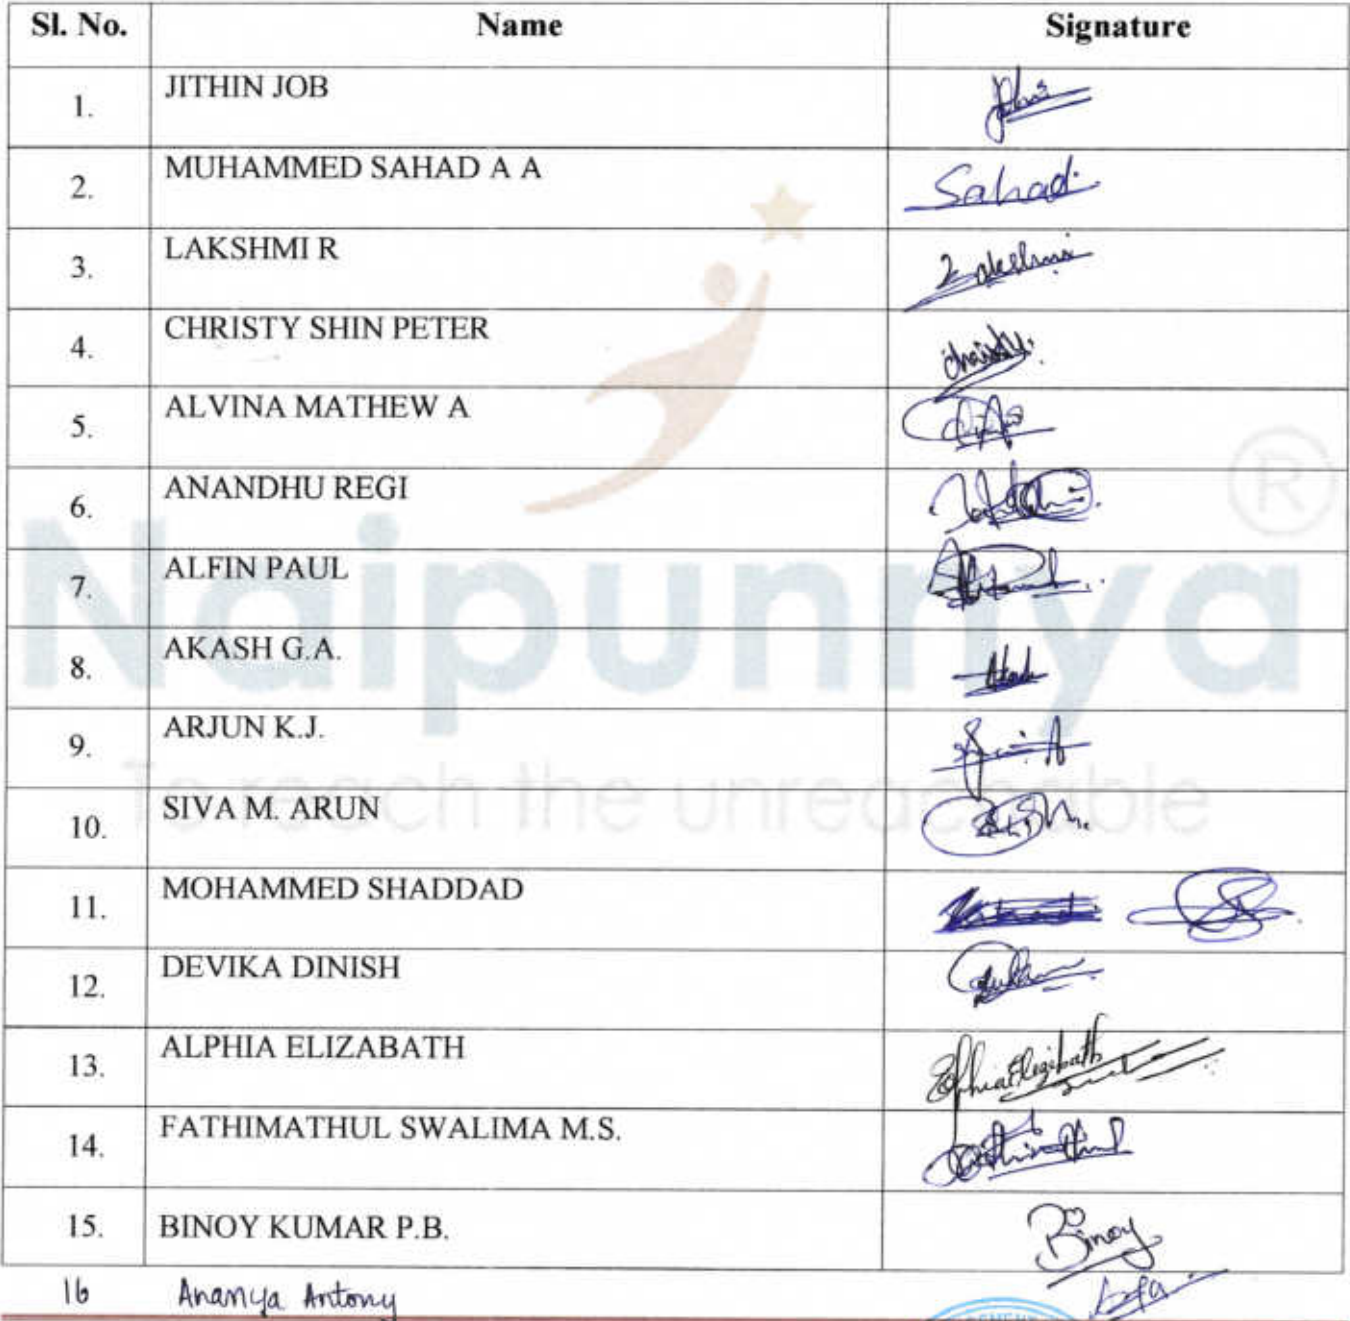 Sl. No. Name Signature
1. JITHIN JOB
2. MUHAMMED SAHAD A A Sahad
3. LAKSHMI R Lakshmi
4. CHRISTY SHIN PETER Christy
5. ALVINA MATHEW A
6. ANANDHU REGI
7. ALFIN PAUL
8. AKASH G.A. Akash
9. ARJUN K.J.
10. SIVA M. ARUN
11. MOHAMMED SHADDAD
12. DEVIKA DINISH
13. ALPHIA ELIZABATH
14. FATHIMATHUL SWALIMA M.S.
15. BINOY KUMAR P.B. Binoy
16 Ananya Antony
Naipunnya ®
To reach the unreachable